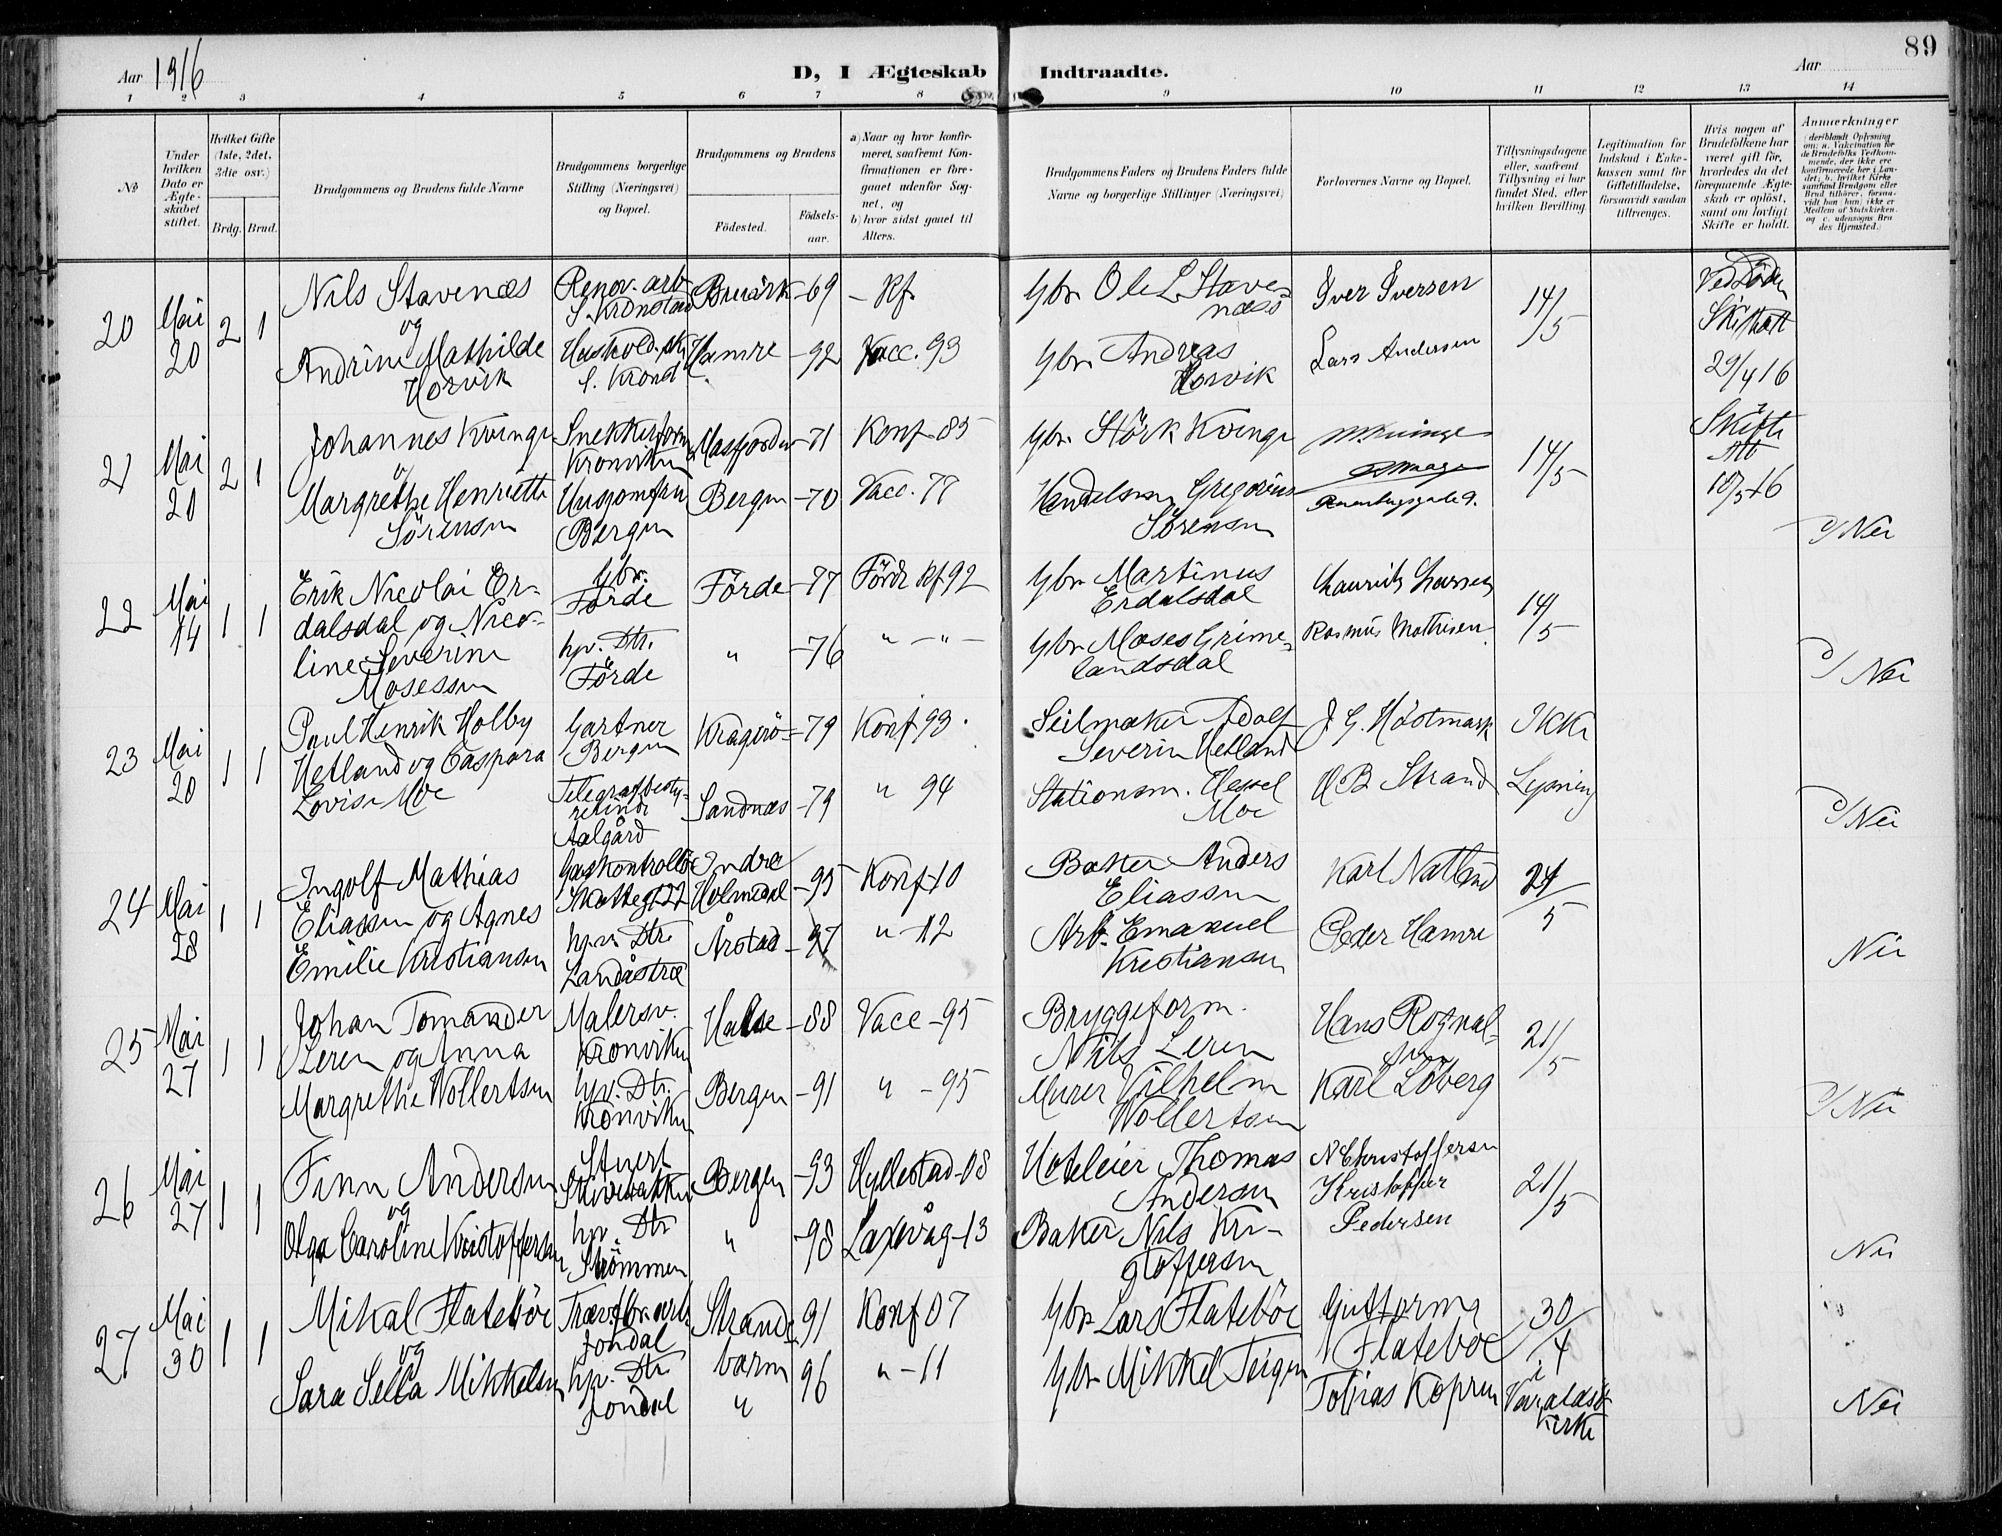 89
Aar 1916
D, I Ægteskab Indtraadte.
Aar
1 2 3 4 5 6 7 8 9 10 11 12 13 14
№
Under hvilken Dato er Ægteskabet stiftet.
Hvilket Gifte (1ste, 2det, 3die osv.)
Brdg. Brud.
Brudgommens og Brudens fulde Navne
Brudgommens borgerlige Stilling (Næringsvei) og Bopæl.
Brudgommens og Brudens
Fødested.
Fødselsaar.
a) Naar og hvor konfirmeret, saafremt Konfirmationen er foregaaet udenfor Sognet, og
b) hvor sidst gaaet til Alters.
Brudgommens Faders og Brudens Faders fulde Navne og borgerlige Stillinger (Næringsvei)
Forlovernes Navne og Bopæl.
Tillysningsdagene eller, saafremt Tillysning ei har fundet Sted, efter hvilken Bevilling
Legitimation for Indskud i Enkekassen samt for Giftetilladelse, forsaavidt saadan tiltrænges.
Hvis nogen af Brudefolkene har været gift før, hvorledes da det foregaaende Ægteskab er opløst, samt om lovligt Skifte er holdt.
Anmerkninger
(deriblandt Oplysning om: a. Vakcination for de Brudefolks Vedkommende, der ikke ere konfirmerede her i Landet; b. hvilket Kirkesamfund Brudgom eller Brud tilhører, forsaavidt han (hun) ikke er Medlem af Statskirken. og c. udensogns Brudes Hjemsted.)
20 Mai 20 2 1
Nils Stavenæs og
Andrine Mathilde Horvik
Renov. arb. S. Kronstad
S. Kronst
Hamre
-69
-92
- Kf
Vacc. 93
Gbr. Ole L Stavenæs
Gbr. Andreas Horvik
Iver Iversen
Lars Andersen
14/5
Ved Døden
Skifteatt
29/4 16
21 Mai 20 2 1
Johannes Kvinge
Margrethe Henriette Sørensen
Snekkerform Kronviken
Bergen
Masfjorden
Bergen
-71
-70
Konf-85
Vacc. 77
Gbr. Störk Kvinge
Handelsm Gregorius Sørensen
14/5
Skifte Att
10/5 16
22 Mai 14 1 1
Erik Nicolai Erdalsdal og Nicoline Severine Mosessen
Gbr. Førde
hpv. Dtr. Førde
Førde
"
-77
-76
Førde Kf 92
" - " -
Gbr Martinus Erdalsdal
Gbr Moses Grimelandsdal
Lauritz Larsen
Rasmus Mathisen
14/5
c/ Nei
23 Mai 20 1 1
Paul Henrik Holby Hetland og Caspara Lovise Moe
Gartner Bergen
Telegrafbestyrerinde Aalgård
Kragerö
Sandnæs
-79
-79
Konf 93.
" 94
Seilmaker Adolf Severin Hetland
Stationsm. Hessel Moe
J G. Höstmark
O B Strand
Ikke Lysning
c/ Nei
24 Mai 28 1 1
Ingolf Mathias Eliassen og Agnes Emilie Kristiansen
Gaskontrollör
hpv. Dtr. Landåstræ
Indre Holmedal
Årstad
-95
-97
Konf-10
" -12
Baker Anders Eliassen
Arb. Emanuel Kristiansen
Karl Natland
Peder Hamre
21/5
c/ Nei
25 Mai 27 1 1
Johan Tomander Leren og Anna Margrethe Wollertsen
Malersv. Kronviken
hpv. Dtr. Kronviken
Halse
Bergen
-88
-91
Vacc -95
" -95
Bryggeform. Nils Leren
Murer Vilhelm Wollertsen
Hans Rognal
Karl Löberg
21/5
Nei
26 Mai 27 1 1
Finn Andersen og
Olga Caroline Kristoffersen
Stuert
hpv. Dtr Strömmen
Bergen
"
-93
-98
Hyllestad-08
Laxevåg-13
Hoteleier Thomas Andersen
Baker Nils Kristoffersen
N Christoffersen
Kristoffer Pedersen
21/5
c/ Nei
27 Mai 30 1 1
Mikal Flatebøe og
Sara Sella Mikkelsen
Jondal
hpv. Dtr Jondal
Strandebarm
"
91
96
Konf 07
" -11
Gbr Lars Flatebøe
Gbr Mikkel Teigen
Guttorm Flateboe
Tobias Kopren
30/4 i Varaldsö Kirke
Nei